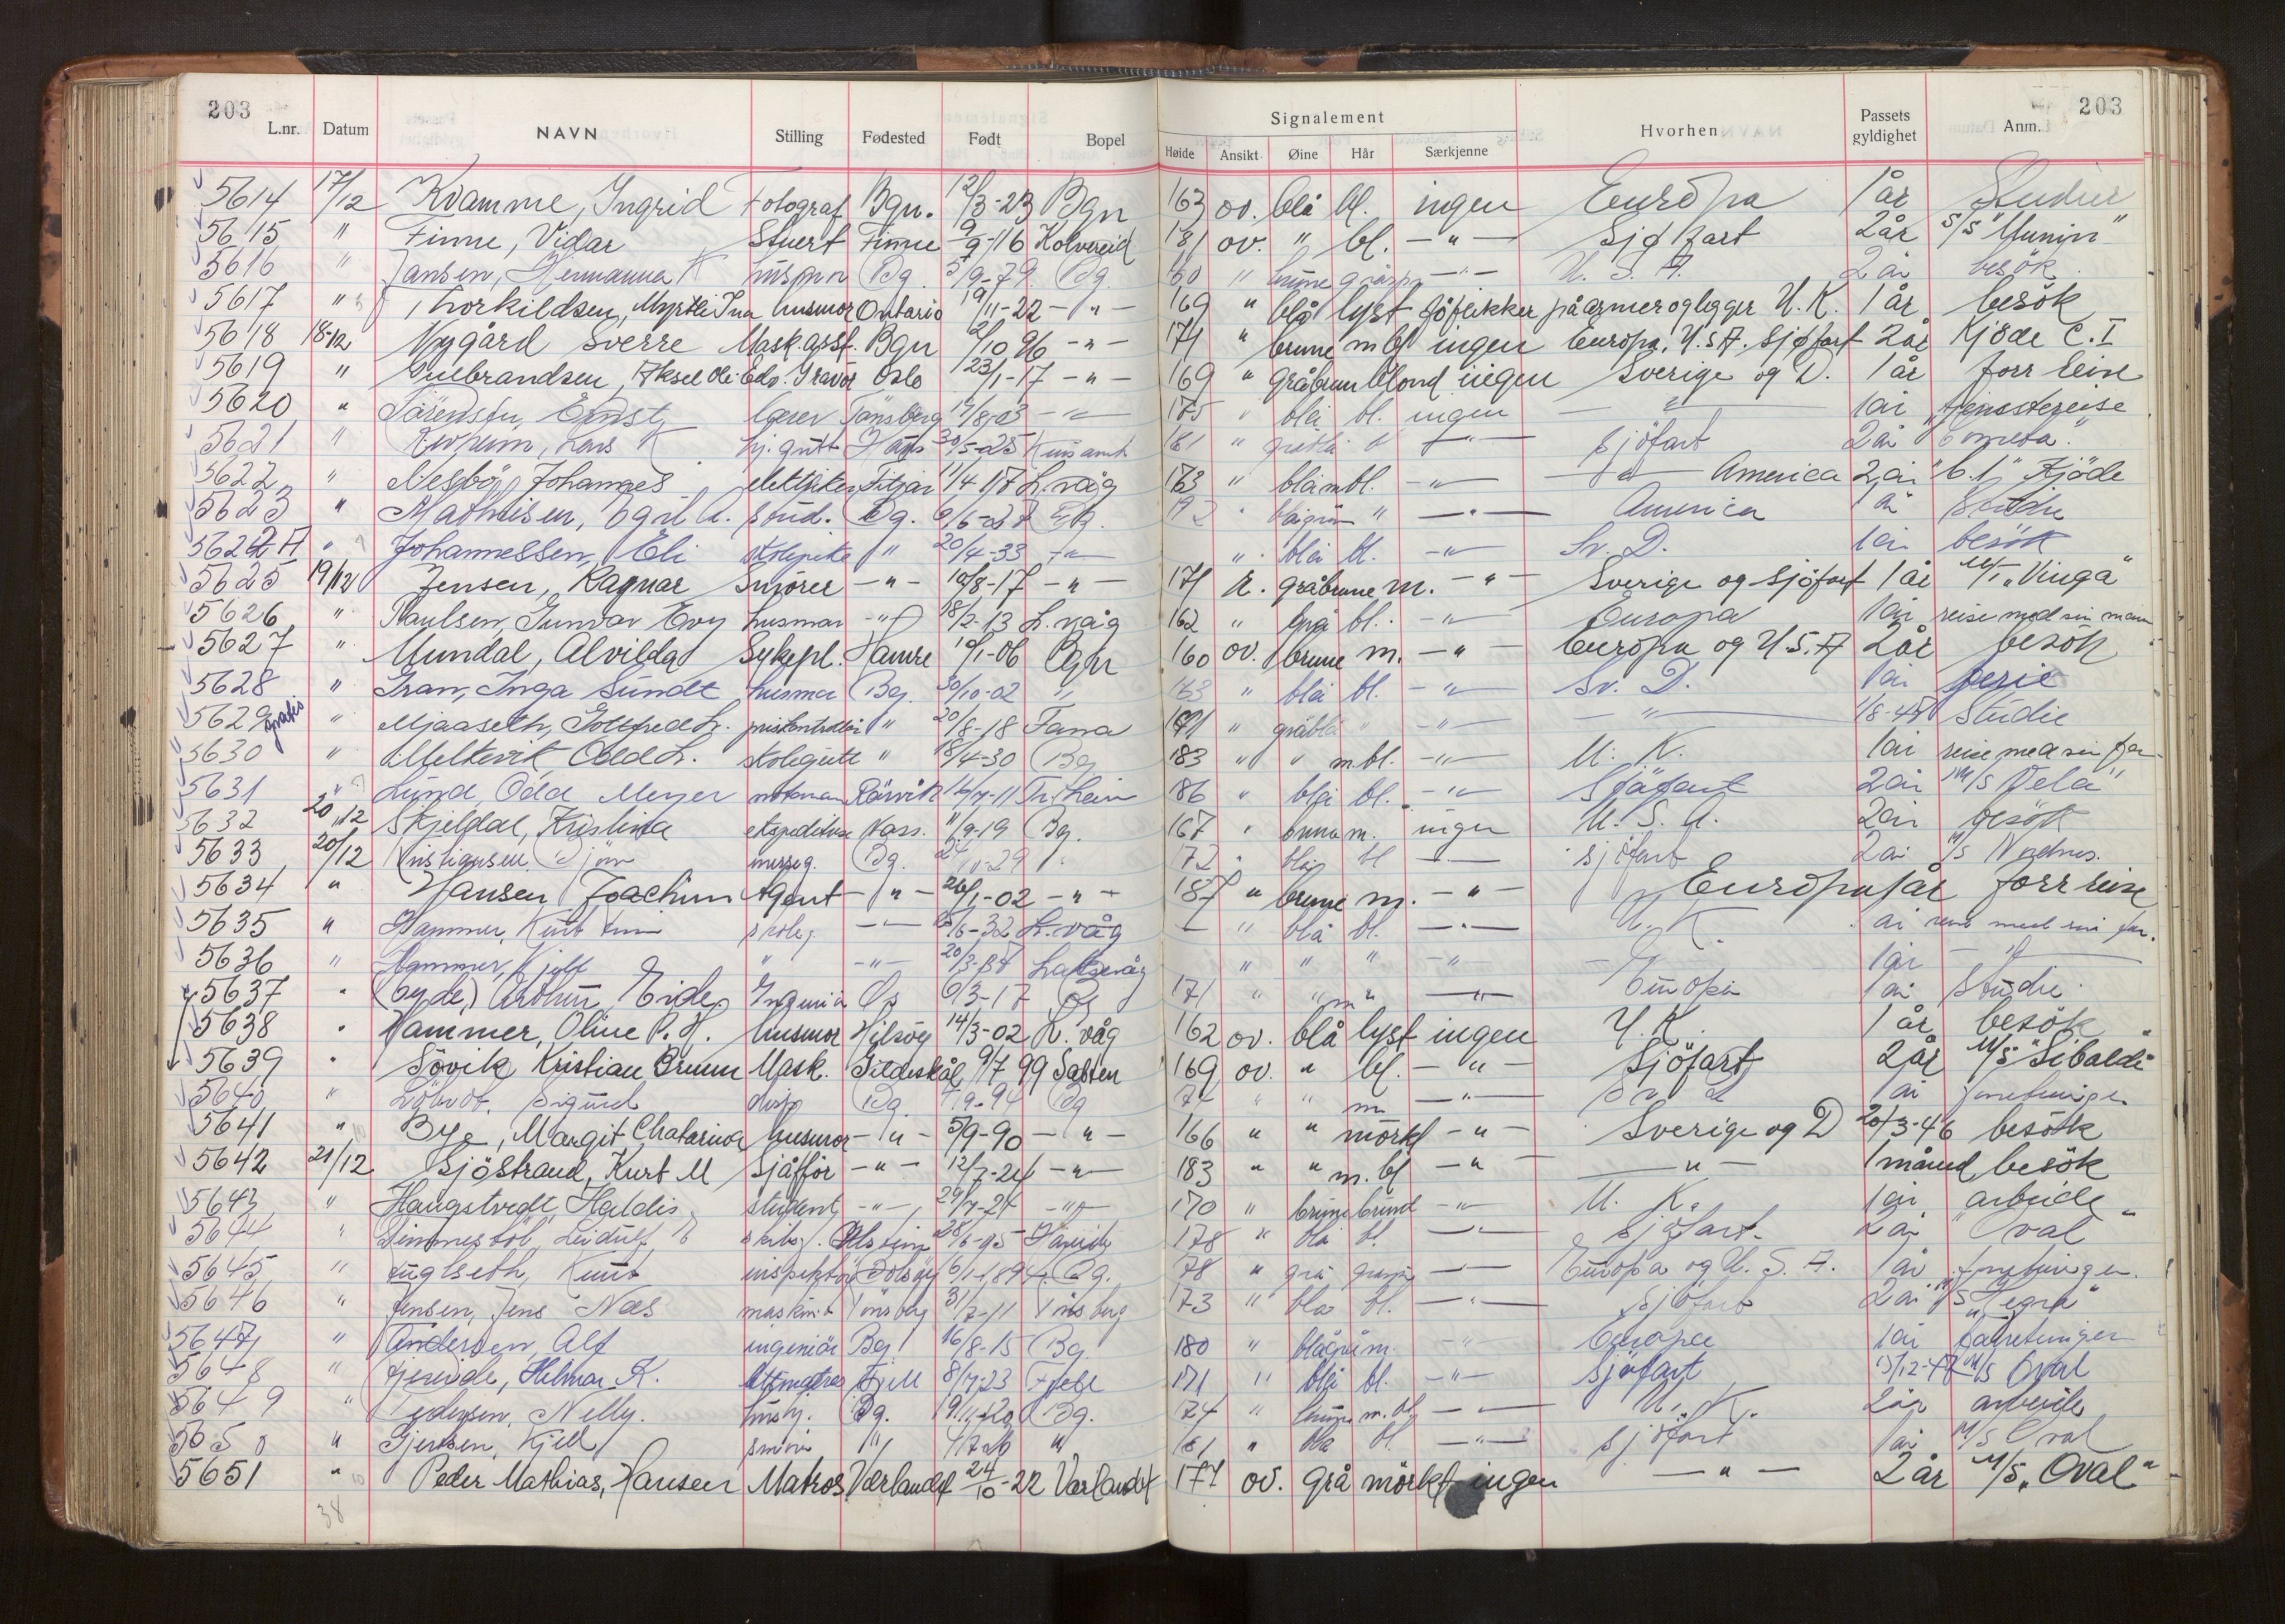 203 203
L.nr. Datum NAVN Stilling Fødested Født Bopel Signalement Hvorhen Passets gyldighet Anm.
Høide Ansikt Øine Hår Særkjenne
5614 17/12 Kvamme, Ingrid Fotograf Bgn. 12/3-23 Bgn 163 ov. blå bl. ingen Europa 1 år Studier
5615 " Finne, Vidar Stuert Finne 9/9-16 Kolvereid 181 ov. " bl. -"- Sjøfart 2 år S/S "Munin"
5616 " Jansen, Hermanna K Bg. 5/9-79 Bg. 160 " brune -"- U.S.A. 2 år besök
5617 " Thorkildsen, Myrtle Ina husmor Ontario 19/11-22 -"- 169 " blå lyst föflekker på armer og legger U.K. 1 år besök
5618 18-12 Nygård Sverre Mask.asst. Bgn 2/10 96 -"- 171 " brune m.bl ingen Europa, U.S.A. sjøfart 2 år Kjöde C.I
5619 " Gulbrandsen, Aksel Ole Edv. Gravör Oslo 23/1-17 -"- 169 " gråbrun blond ingen Sverige og D. 1 år forr reise
5620 " Tönsberg 17/8-03 -"- 175 " blå bl. ingen -"- 1 år tjenestereise
5621 " Lars K 30/5-25 181 " gråblå " -"- sjöfart 2 år
5622 " Nesbö, Johannes elektriker Fitjar 11/4 17 L.våg 163 " blå mbl. -"- -"- America 2 år "C.I" Kjöde
5623 " Mathisen, Egil A. stud. Bg. 6/6-27 Bg. " -"- America 1 år Studie
5624 A " Johannessen, Eli skolepike " 20/4-33 -"- " blå bl. -"- Sv. D. 1 år besök
5625 19/12 Jensen, Ragnar Smörer -"- 10/8-17 -"- 171 R. gråbrune m. -"- Sverige og sjöfart 1 år M/T "Vinga"
5626 " Paulsen, Gunvor Evy husmor -"- 18/2-13 L.våg 162 " blå bl. -"- Europa 1 år reise med sin mann
5627 " Mundal, Alvilda Sykepl. Hamre 10/1-06 Bgn 160 ov. brune m. -"- Europa og U.S.A 2 år besök
5628 " Gran, Inga Sundt husmor Bg. 30/10-02 " 163 " blå bl. -"- Sv. D. 1 år ferie
5629 gratis " Mjaaseth, Gottfred L. priskontrollör " 20/8-18 Fana 171 " gråblå " -"- -"- 1/8-47 Studie
5630 " Meltevik Odd L. skolegutt " 18/4-30 Bg 183 " " m.bl. -"- U.K. 1 år reise med sin far
5631 " Lund, Odd Meyer Rörvik 16/7-11 Tr.heim 186 " blå bl. -"- Sjöfart 2 år M/S "Vela"
5632 20/12 Skjeldal, Kristina ekspeditrise Voss. 11/9-19 Bg. 167 " brune m. ingen U.S.A. 2 år besök
5633 20/12 Kristiansen Björn messeg. Bg. 10-29 " 172 " blå bl -"- sjöfart 2 år M/S Nordnes.
5634 " Hansen Joachim Agent -"- 26/1-02 -"- 187 " brune m. -"- Europa 1 år forr reise
5635 " Hammer, Knut skoleg. -"- 6-32 L.våg - " blå bl. -"- U.K. år reise med sin far.
5636 " Hammer, Kjell " -"- 20/3-34 Laksevåg " " " -"- 1 år -"-
5637 " (Eyde) Arthur Eide Ingeniör 6/3-17 Bg 171 " " m " -"- Europa 1 år Studie.
5638 " Hammer, Oline P.H. husmor Hilsöy 14/3-02 L.våg 162 ov. blå lyst ingen U.K. 1 år besök
5639 " Sövik Kristian Bruun Mask. Gildeskål 9/7 99 Salten 169 ov. " bl. -"- Sjöfart 2 år M/S "Sibaldi"
5640 " Sigurd disp Bg. 9-94 Bg 174 " " m -"- Sv. D 1 år forretninger
5641 " Bye, Margit Chatarina husmor -"- 5/9-90 -"- 166 " " mörkt -"- Sverige og D 20/3-46 besök
5642 21/12 Sjöstrand, Kurt M Sjåfför -"- 12/7-24 -"- 183 " " m.bl -"- -"- 1 måned besök
5643 " Haugstvedt, Haldis student -"- 29/7-21 -"- 170 " brune brunt -"- U.K. 1 år arbeide
5644 " Leidulf 28/6-95 178 " blå bl. -"- sjöfart. 2 år "Oval"
5645 " Fuglseth, Knut inspektör 6/1-1894 Bg. 178 " grå -"- Europa og U.S.A. 1 år forretninger.
5646 " Jensen, Jens Næs maskinist Tönsberg 31/7-11 Tönsberg 173 " blå bl. -"- sjöfart 2 år M/S "Tegra"
5647 " Andersen, Alf ingeniör Bg 16/8-15 Bg. 180 " blågrå m. -"- Europa 1 år forretninger
5648 " Hilmar K. Fjell 8/7-23 Fjell 171 " blå bl. -"- sjöfart 13/12-47 M/S Oval
5649 " Pedersen, Nelly. hush. Bg. 19/11-20 Bg. 174 " brune m. bl. -"- U.K. 2 år arbeide
5650 " Gjertsen, Kjell smörer " 4/7-26 " 181 " blå bl. -"- sjöfart 1 år M/S Oval
5651 " Peder Mathias, Hansen Matros Værlandet 24/10-22 Værlandet 171 ov. grå mörkt ingen -"- 2 år M/S "Oval"
38